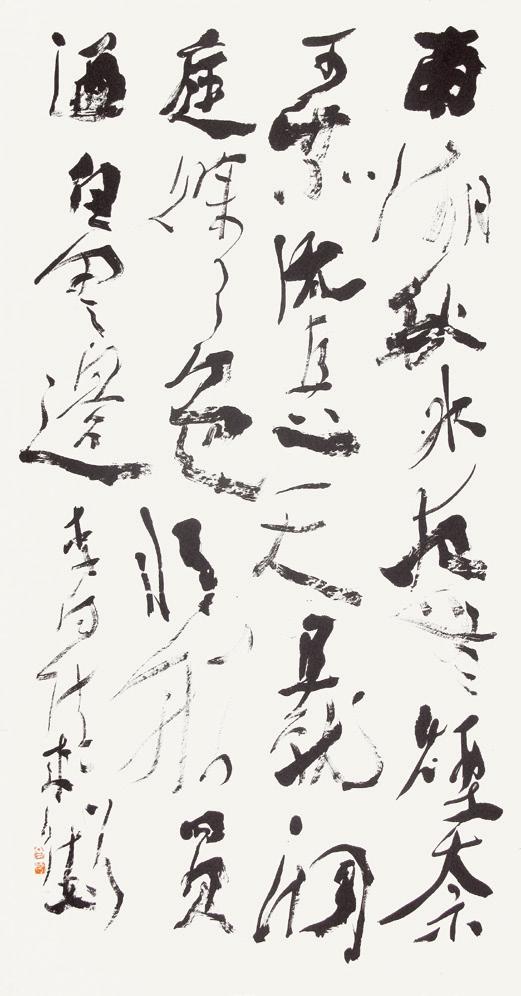 南湖秋水夜無煙奈
可乘流直上天且就洞
庭賒月色將船買
酒白雲邊李白詩